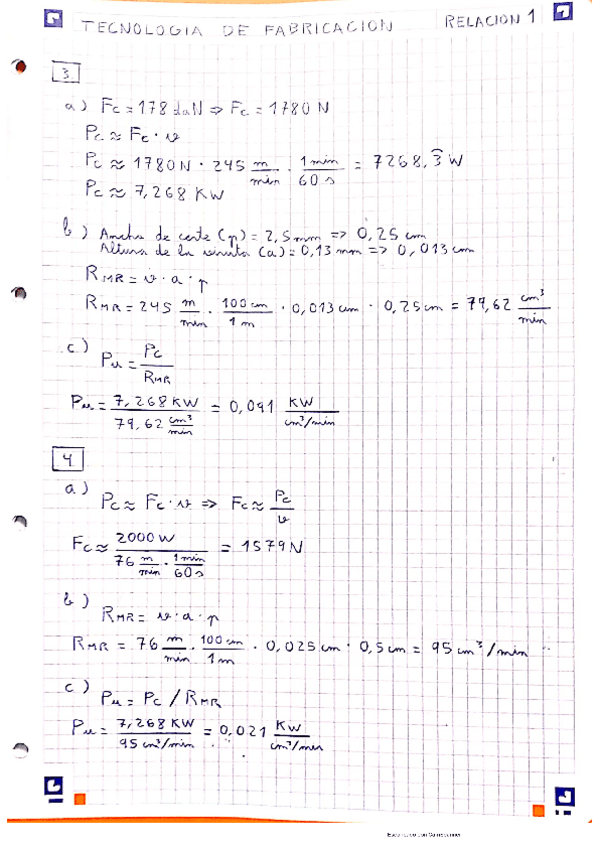 TECNOLOGIA DE FABRICACION RELACION 1
3
a) Fc = 178 daN => Fc = 1780 N
Pc ≈ Fc · v
Pc ≈ 1780 N · 245 m/min · 1 min/60 s = 7268,3̂ W
Pc ≈ 7,268 KW
b) Ancho de corte (p) = 2,5 mm => 0,25 cm
Altura de la viruta (a) = 0,13 mm => 0,013 cm
RMR = v · a · p
RMR = 245 m/min · 100 cm/1 m · 0,013 cm · 0,25 cm = 79,62 cm³/min
c) Pu = Pc/RMR
Pu = 7,268 KW/79,62 cm³/min = 0,091 KW/cm³/min
4
a) Pc ≈ Fc · v => Fc ≈ Pc/v
Fc ≈ 2000 W/76 m/min · 1 min/60 s = 1579 N
b)
RMR = v · a · p
RMR = 76 m/min · 100 cm/1 m · 0,025 cm · 0,5 cm = 95 cm³/min
c) Pu = Pc / RMR
Pu = 7,268 KW/95 cm³/min = 0,021 KW/cm³/min
Escaneado con CamScanner